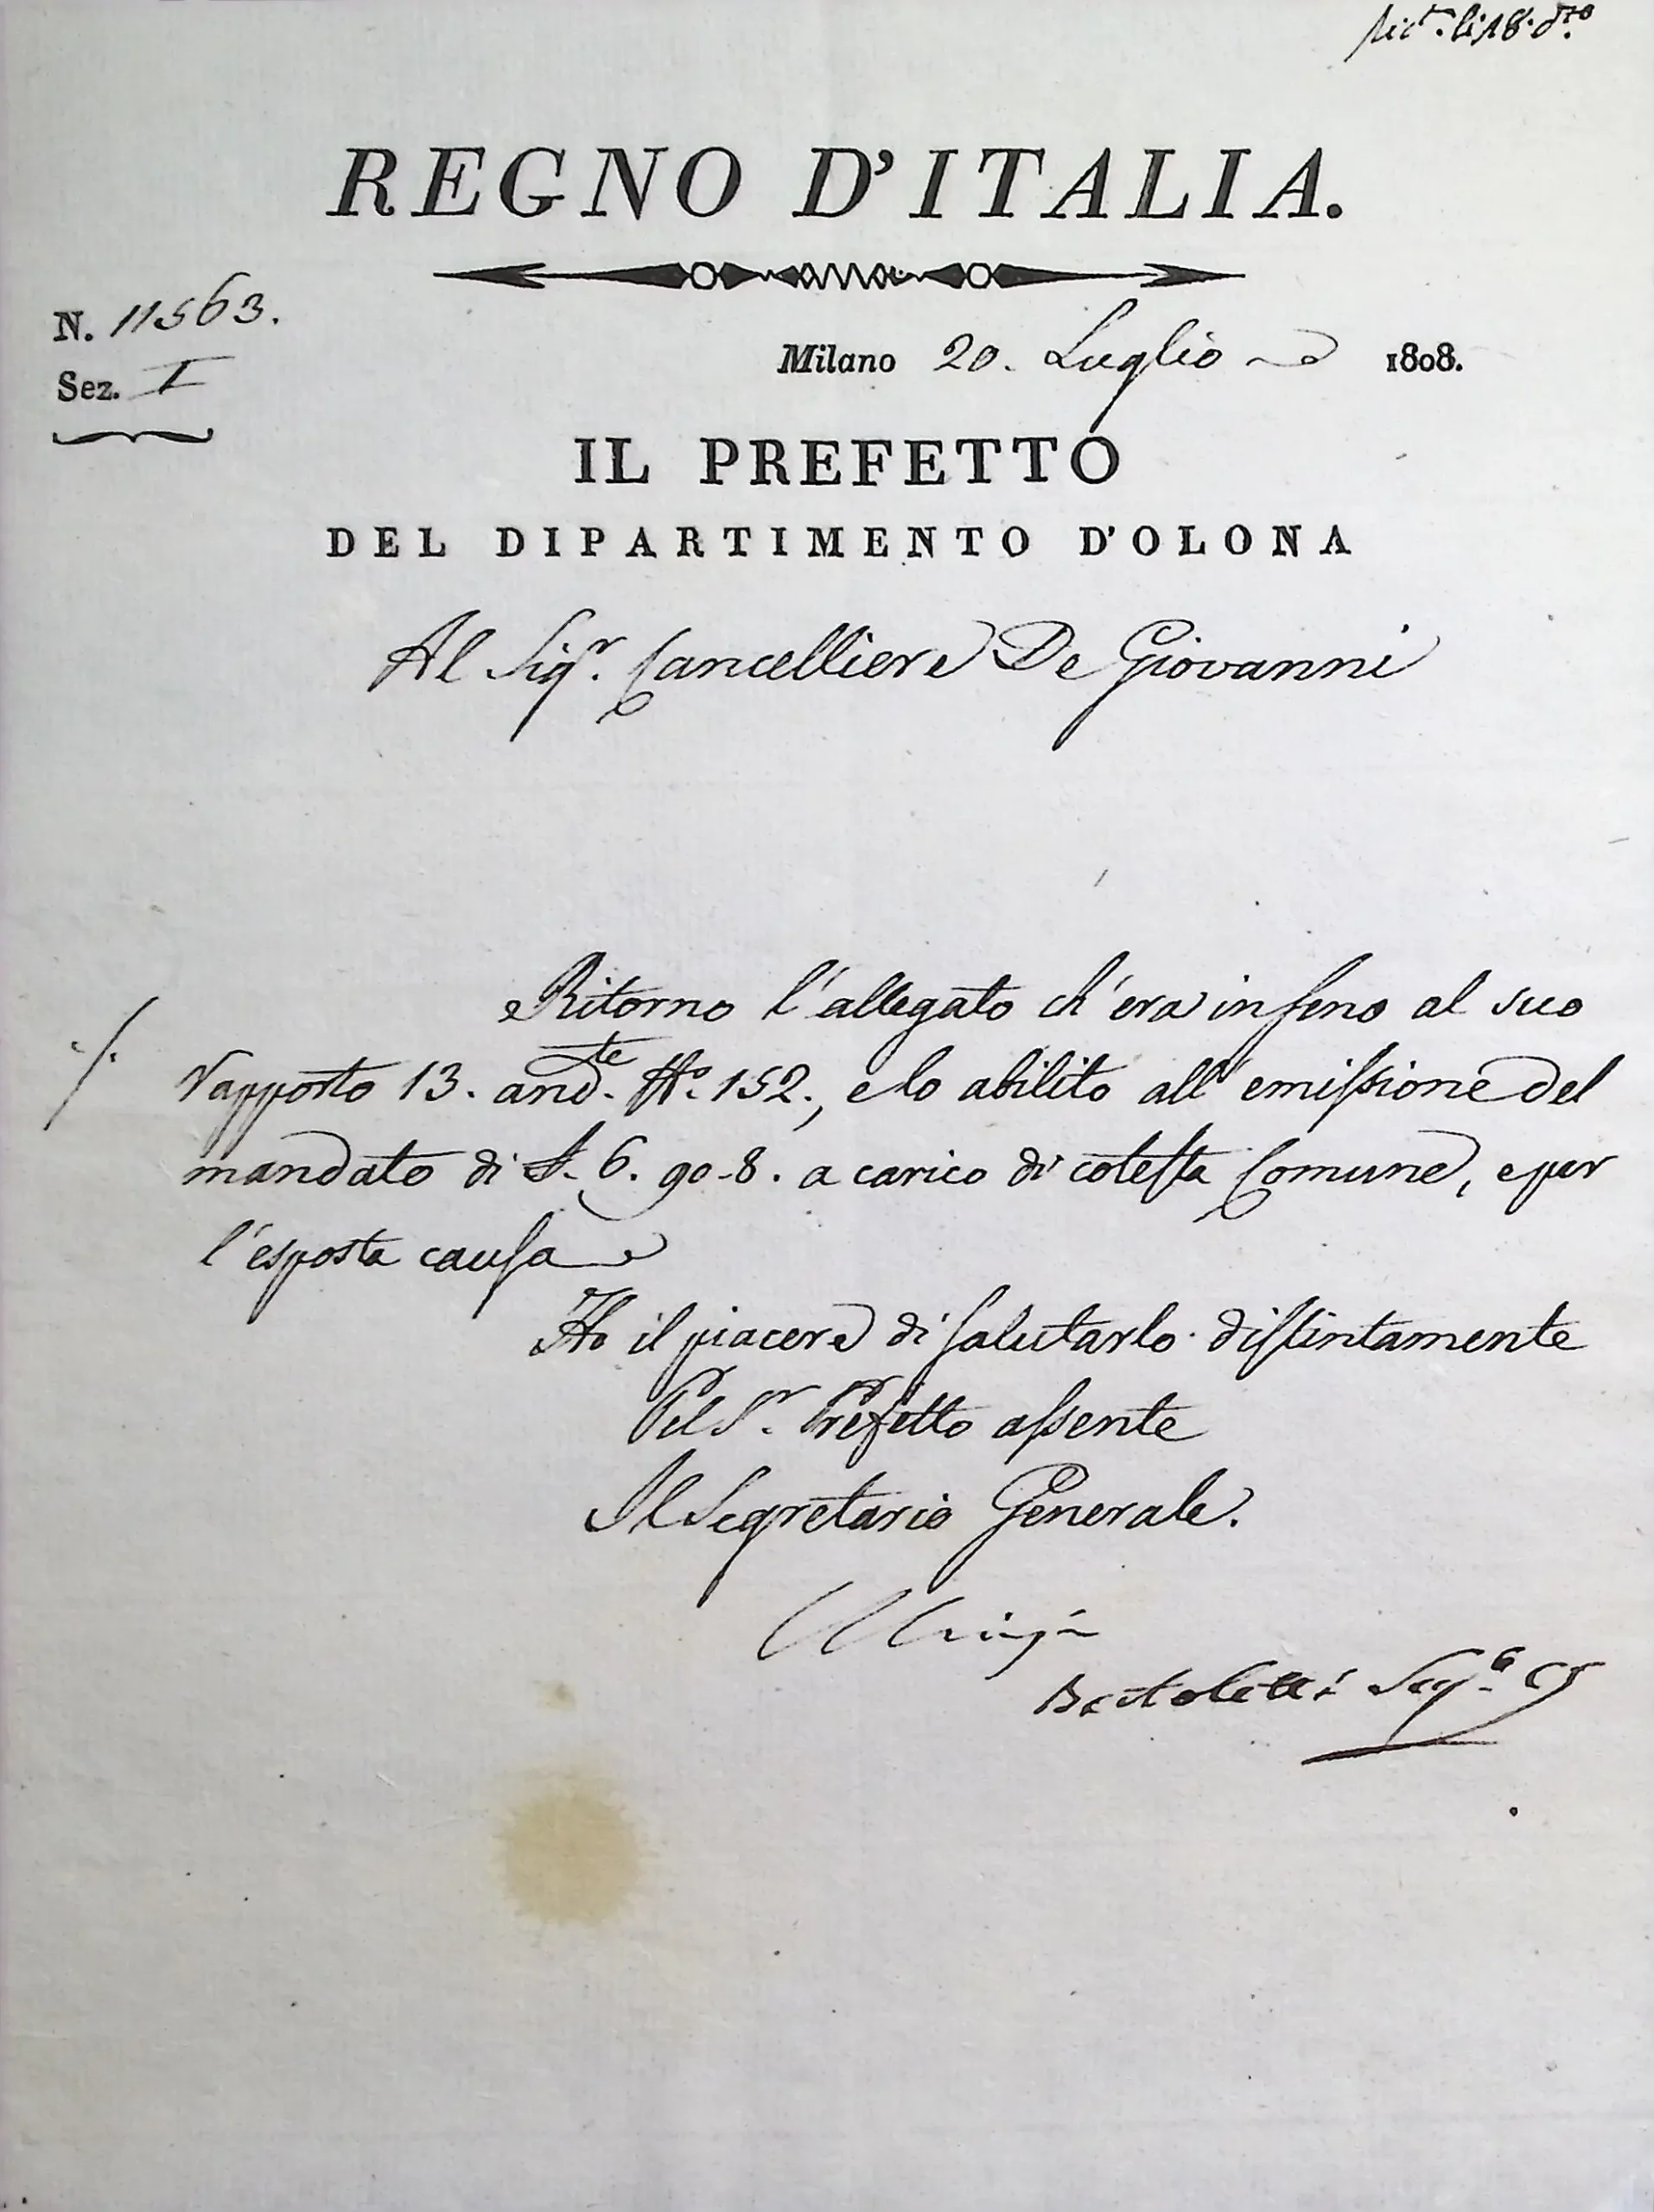 REGNO D'ITALIA.
N. 11563.
Milano 20. Luglio 1808.
Sez. I
IL PREFETTO
DEL DIPARTIMENTO D'OLONA
Al Sigr. Cancelliere De Giovanni
Ritorno l'allegato ch'era in seno al suo
rapporto 13. andte. No. 152., e lo abilito all'emissione del
mandato di 6. 90-8. a carico di cotesta Comune, e per
l'esposta causa
Ho il piacere di salutarlo distintamente
Pel Sr. Prefetto assente
Il Segretario Generale.
Bertoletti Sego.